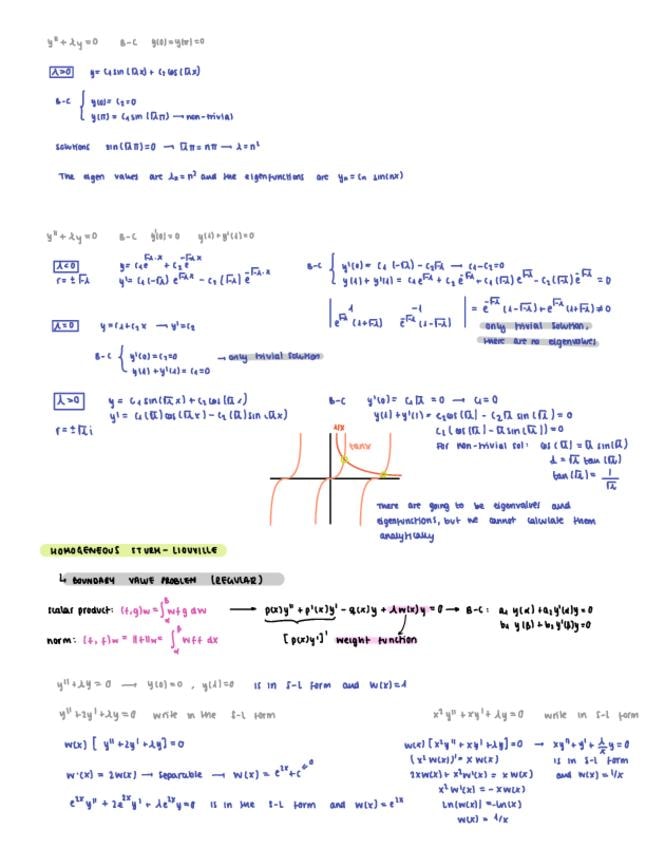 y'' + λy = 0   B-C   y(0) = y(π) = 0
λ>0   y = C₁ sin(√λx) + C₂ cos(√λx)
B-C { y(0) = C₂ = 0
y(π) = C₁ sin(√λπ) → non-trivial
solutions   sin(√λπ) = 0 → √λπ = nπ → λ = n²
The eigen values are λₙ = n² and the eigenfunctions are yₙ = Cₙ sin(nx)
y'' + λy = 0   B-C   y'(0) = 0   y(1) + y'(1) = 0
λ<0   y = C₁e^(√-λ·x) + C₂e^(-√-λ·x)
r = ±√-λ   y' = C₁(√-λ)e^(√-λx) - C₂(√-λ)e^(-√-λ·x)
B-C { y'(0) = C₁(√-λ) - C₂√-λ → C₁-C₂=0
y(1) + y'(1) = C₁e^√-λ + C₂e^-√-λ + C₁(√-λ)e^√-λ - C₂(√-λ)e^-√-λ = 0
| 1   -1 |
| e^√-λ(1+√-λ)   e^-√-λ(1-√-λ) | = e^-√-λ(1-√-λ)+e^√-λ(1+√-λ) ≠ 0
only trivial solution,
there are no eigenvalues
λ=0   y = C₁+C₂x → y' = C₂
B-C { y'(0) = C₂ = 0   → only trivial solution
y(1) + y'(1) = C₁ = 0
λ>0   y = C₁ sin(√λx) + C₂ cos(√λx)
y' = C₁(√λ)cos(√λx) - C₂(√λ)sin(√λx)
r = ±√λ i
B-C   y'(0) = C₁√λ = 0 → C₁ = 0
y(1) + y'(1) = C₂cos(√λ) - C₂√λ sin(√λ) = 0
C₂(cos(√λ) - √λ sin(√λ)) = 0
For non-trivial sol: cos(√λ) = √λ sin(√λ)
1 = √λ tan(√λ)
tan(√λ) = 1/√λ
1/x
tanx
There are going to be eigenvalues and
eigenfunctions, but we cannot calculate them
analytically
HOMOGENEOUS STURM-LIOUVILLE
↳ BOUNDARY VALUE PROBLEM (REGULAR)
scalar product: (f,g)w = ∫_α^β wfg dw → p(x)y'' + p'(x)y' - q(x)y + λw(x)y = 0 → B-C: a₁ y(α) + a₂ y'(α)y = 0
b₁ y(β) + b₂ y'(β)y = 0
norm: (f, f)w = ||f||w = ∫_α^β wff dx   [p(x)y']'   weight function
y'' + λy = 0 → y(0) = 0, y(1) = 0   is in S-L form and w(x) = 1
y'' + 2y' + λy = 0   write in the S-L form
w(x) [ y'' + 2y' + λy] = 0
w'(x) = 2w(x) → separable → w(x) = e^2x + c^0
e^2x y'' + 2e^2x y' + λe^2x y = 0   is in the S-L form and w(x) = e^2x
x²y'' + xy' + λy = 0   write in S-L form
w(x) [x²y'' + xy' + λy] = 0 → xy'' + y' + λ/x y = 0
(x² w(x))' = x w(x)   is in S-L form
2xw(x) + x²w'(x) = x w(x)   and w(x) = 1/x
x² w'(x) = -x w(x)
ln(w(x)) = -ln(x)
w(x) = 1/x